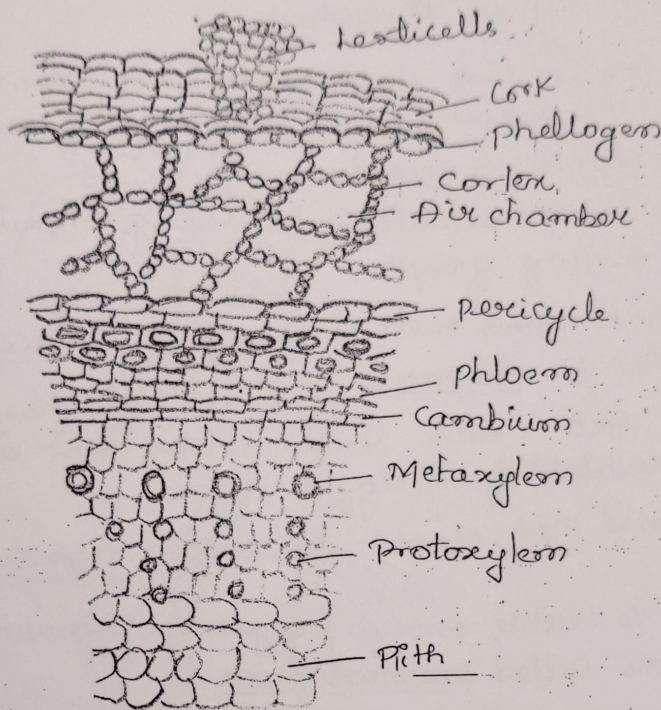 Lenticells
Cork
phellogen
Cortex
Air chamber
pericycle
phloem
Cambium
Metaxylem
Protoxylem
Pith